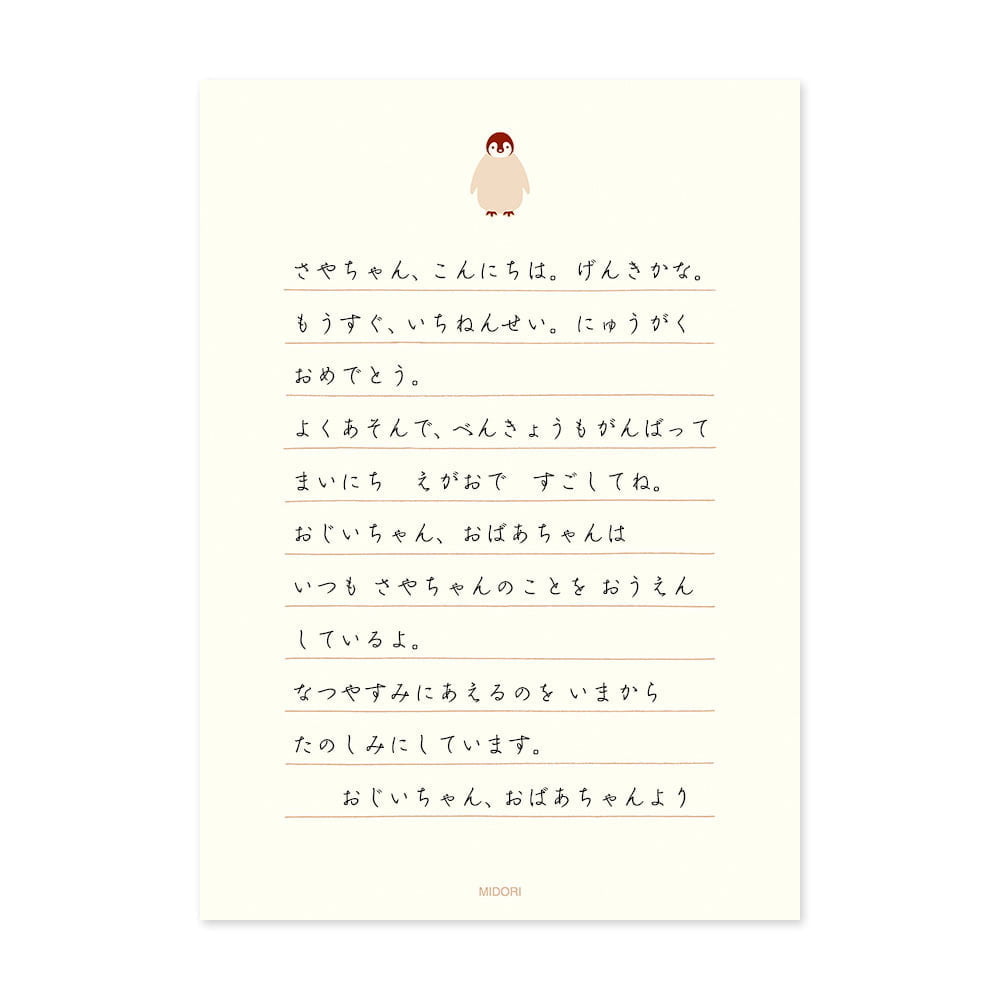 さやちゃん、こんにちは。げんきかな。
もうすぐ、いちねんせい。にゅうがく
おめでとう。
よくあそんで、べんきょうもがんばって
まいにち　えがおで　すごしてね。
おじいちゃん、おばあちゃんは
いつも さやちゃんのことを おうえん
しているよ。
なつやすみにあえるのを いまから
たのしみにしています。
おじいちゃん、おばあちゃんより
MIDORI